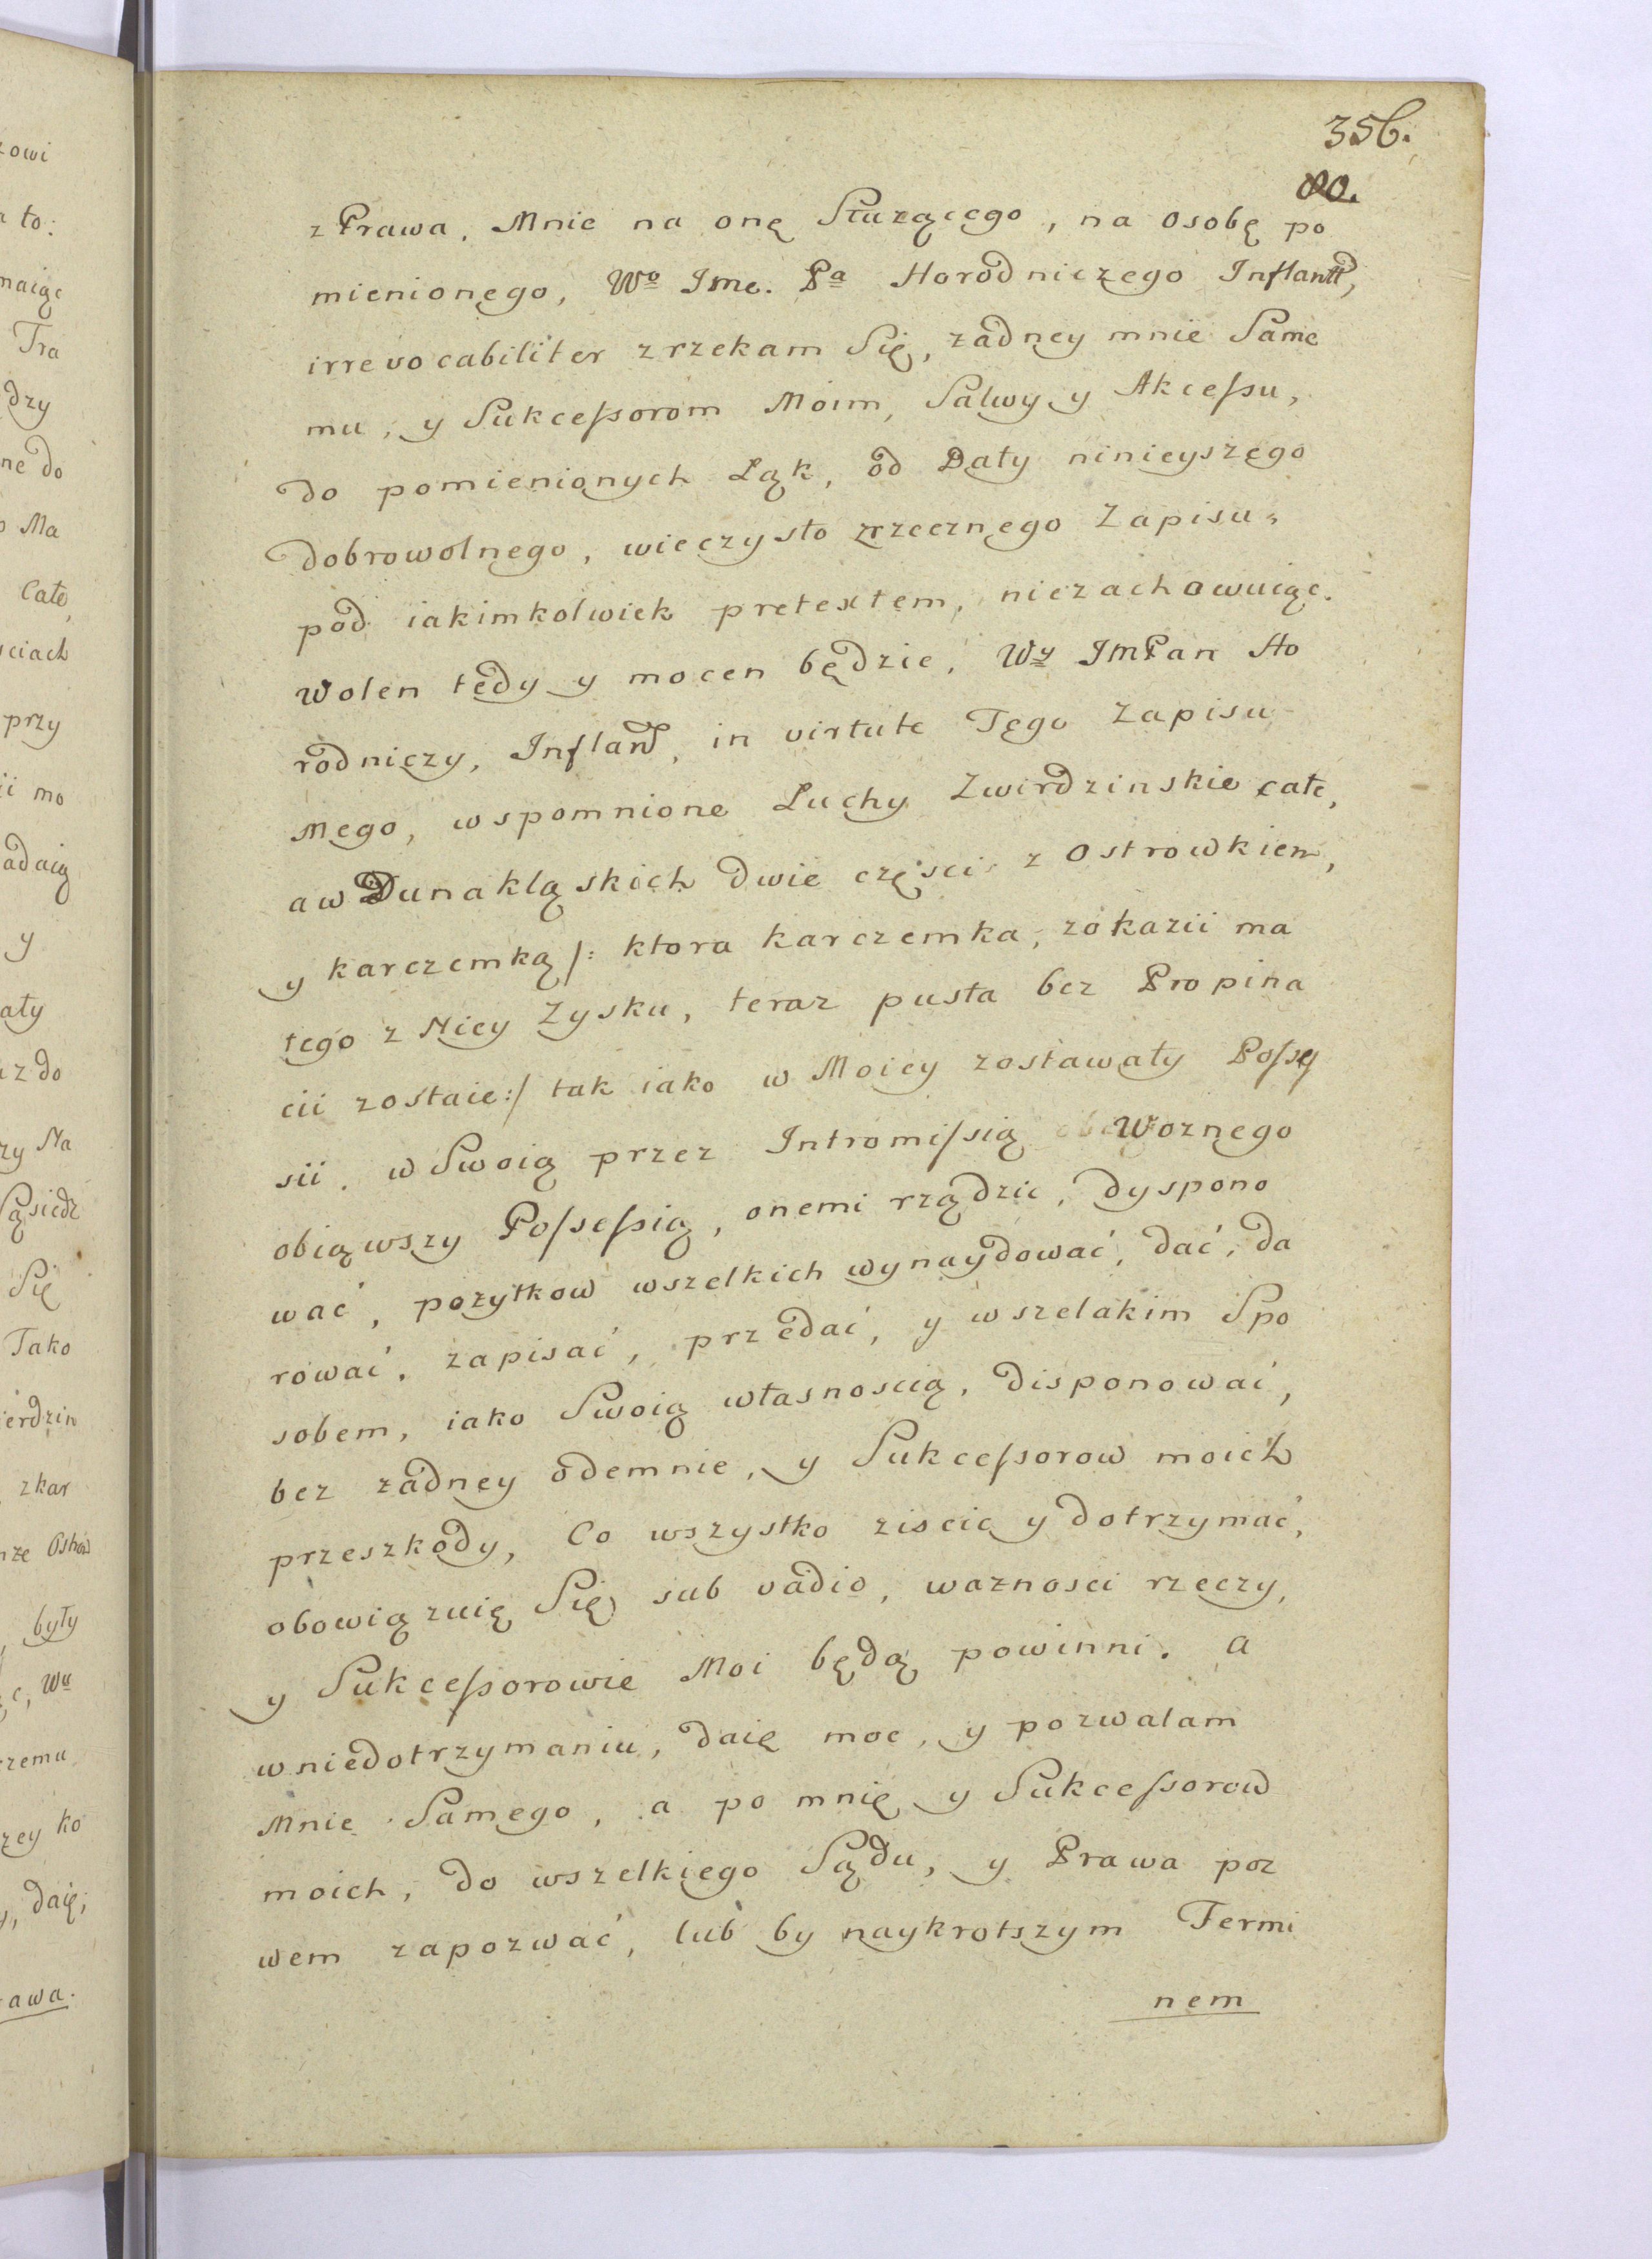 356.
80.
z Prawa, Mnie na onę Służącego, na osobę po
mienionego, Wo Jme. Pa Horodniczego Inflantt,
irrevocabiliter zrzekam Się, żadney mnie Same
mu, y Sukceſsorom Moim, Salwy y Akceſsu,
do pomienionych Łąk, od Daty ninieyszego
dobrowolnego, wieczysto zrzecznego Zapisu,
pod iakimkolwiek pretextem, niezachowuiąc.
Wolen tedy y mocen będzie, Wy JmPan Ho
rodniczy, Infland, in virtute Tego Zapisu
Mego, wspomnione Łuchy Zwirdzinskie całe,
a w Dunakląskich dwie częsci z Ostrowkiem,
y karczemką /: ktora karczemka, zokazii ma
łego z Niey Zysku, teraz pusta bez Propina
cii zostaie :/ tak iako w Moiey zostawały Poſse
sii, w Swoią przez Intromiſsią Woznego
obiąwszy Poſseſsią, onemi rządzic, dyspono
wać, pożytkow wszelkich wynaydować, dać, da
rować, zapisać, przedać, y wszelakim Spo
sobem, iako Swoią własnoscią, disponować,
bez żadney odemnie, y Sukceſsorow moich
przeszkody, Co wszystko ziscic y dotrzymać,
obowiązuię Się sub vadio, ważnosci rzeczy,
y Sukceſsorowie Moi będą powinni. a
w niedotrzymaniu, daię moc, y pozwalam
Mnie Samego, a po mnie y Sukceſsorow
moich, do wszelkiego Sądu, y Prawa poz
wem zapozwać, lub by naykrotszym Termi
nem